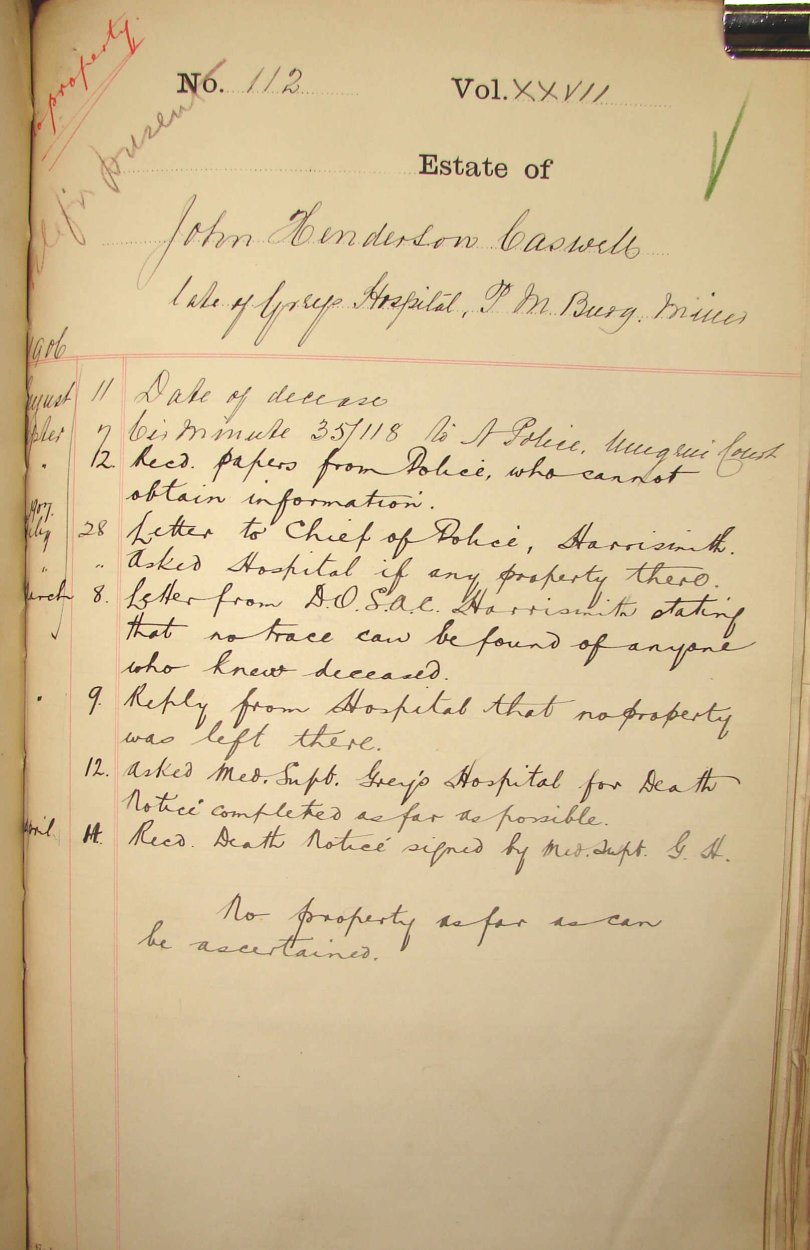 property
present
No. 112 Vol. XXVII
Estate of
John Henderson Caswell
late of Greys Hospital, P M Burg. Miner
1906
August 11 Date of decease
7 Cir Minute 35/118 to N Police, Umgeni Court
" 12. Recd. papers from Police, who cannot
obtain information.
1907.
28 Letter to Chief of Police, Harrismith.
" " Asked Hospital if any property there.
March 8. Letter from D.O. S.A.C. Harrismith stating
that no trace can be found of anyone
who knew deceased.
" 9. Reply from Hospital that no property
was left there.
12. Asked Med. Supt. Grey's Hospital for Death
Notice completed as far as possible.
April 14. Recd. Death Notice signed by Med. Supt. G. H.
No property as far as can
be ascertained.